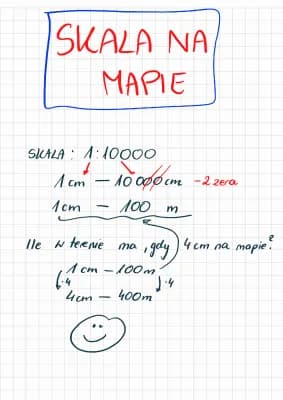 SKALA NA
MAPIE
SKALA: 1:10000
1cm – 10000cm -2 zera
1cm – 100 m
Ile w terenie ma, gdy 4cm na mapie?
1cm – 100m
·4 ·4
4cm – 400m